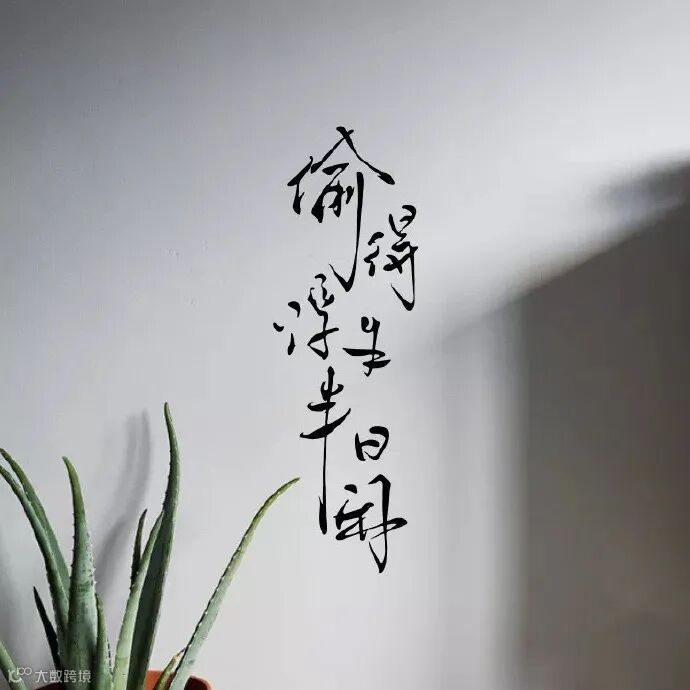 偷得浮生半日闲
大数跨境